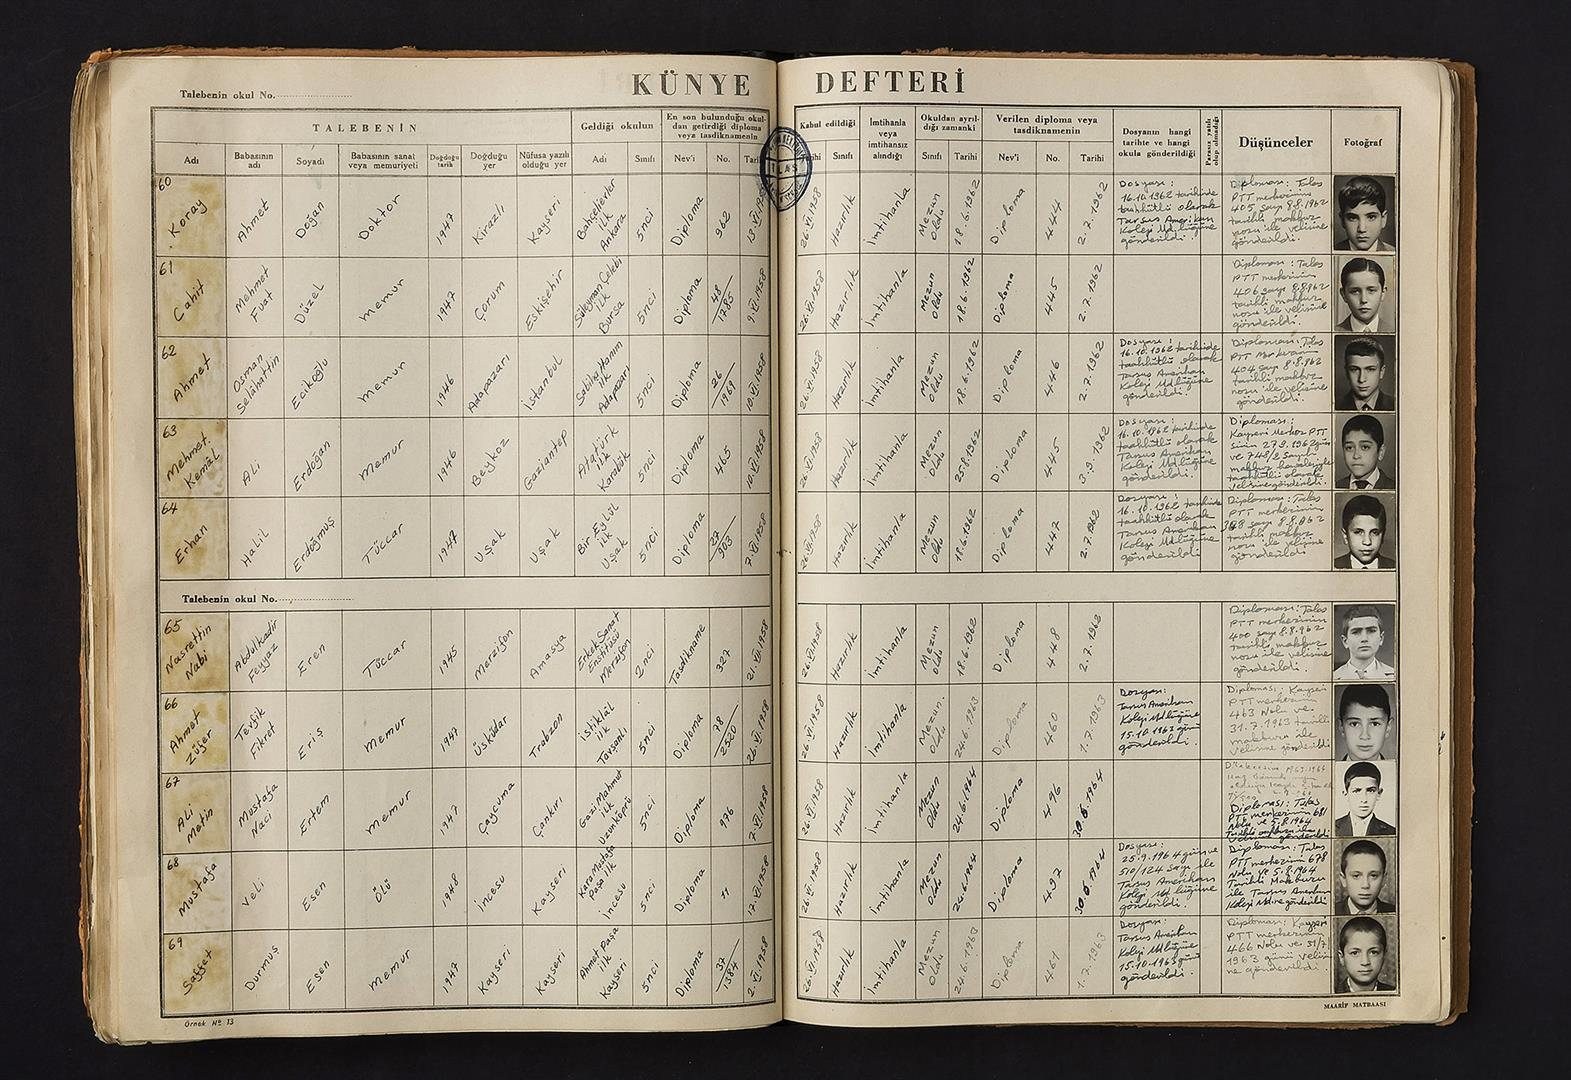 KÜNYE DEFTERİ
Talebenin okul No.
TALEBENİN
Geldiği okulun
En son bulunduğu okul-
dan getirdiği diploma
veya tasdiknamenin
Kabul edildiği
İmtihanla
veya
imtihansız
alındığı
Okuldan ayrıl-
dığı zamanki
Verilen diploma veya
tasdiknamenin
Dosyanın hangi
tarihte ve hangi
okula gönderildiği
Parasız yatılı
olup olmadığı
Düşünceler
Fotoğraf
Adı
Babasının
adı
Soyadı
Babasının sanat
veya memuriyeti
Doğduğu
tarih
Doğduğu
yer
Nüfusa yazılı
olduğu yer
Adı
Sınıfı
Nev'i
No.
Sınıfı
Sınıfı
Tarihi
Nev'i
No.
Tarihi
60 Koray Ahmet Doğan Doktor 1947 Kirazlı Kayseri Bahçelievler ilk Ankara 5nci Diploma 962
26.VI.1958 Hazırlık İmtihanla Mezun oldu 18.6.1962 Diploma 444 2.7.1962
Dosyası:
16.10.1962 tarihinde
taahhütlü olarak
Tarsus Amerikan
Koleji Md.lüğüne
gönderildi.
Diploması: Talas
PTT merkezinin
405 sayı 8.8.1962
tarihli makbuz
nosu ile velisine
gönderildi.
61 Cahit Mehmet Fuat Düzel Memur 1947 Çorum Eskişehir Süleyman Çelebi ilk Bursa 5nci Diploma 48/1785 9.VI.1958
26.VI.1958 Hazırlık İmtihanla Mezun oldu 18.6.1962 Diploma 445 2.7.1962
Diploması: Talas
PTT merkezinin
406 sayı 8.8.962
tarihli makbuz
nosu ile velisine
gönderildi.
62 Ahmet Osman Selahattin Ecikoğlu Memur 1946 Adapazarı İstanbul Sabiha Hanım ilk Adapazarı 5nci Diploma 26/1969 10.VI.1958
26.VI.1958 Hazırlık İmtihanla Mezun oldu 18.6.1962 Diploma 446 2.7.1962
Dosyası:
16.10.1962 tarihinde
taahhütlü olarak
Tarsus Amerikan
Koleji Md.lüğüne
gönderildi.
Diploması: Talas
PTT Merkezinin
404 sayı 8.8.962
tarihli makbuz
nosu ile velisine
gönderildi.
63 Mehmet Kemâl Ali Erdoğan Memur 1946 Beykoz Gaziantep Atatürk ilk Karabük 5nci Diploma 465 10.VI.1958
26.VI.1958 Hazırlık İmtihanla Mezun oldu 25.8.1962 Diploma 445 3.9.1962
Dosyası:
16.10.1962 tarihinde
taahhütlü olarak
Tarsus Amerikan
Koleji Md.lüğüne
gönderildi.
Diploması:
Kayseri Merkez PTT
sinin 27.9.1962 gün
ve 748/2 sayılı
makbuz
taahhütlü olarak
velisine gönderildi.
64 Erhan Halil Erdoğmuş Tüccar 1947 Uşak Uşak Bir Eylül ilk Uşak 5nci Diploma 27/903 7.VI.1958
26.VI.1958 Hazırlık İmtihanla Mezun oldu 18.6.1962 Diploma 447 2.7.1962
Dosyası:
16.10.1962 tarihinde
taahhütlü olarak
Tarsus Amerikan
Koleji Md.lüğüne
gönderildi
Diploması: Talas
PTT merkezinin
398 sayı 8.8.962
tarihli makbuz
nosu ile velisine
gönderildi.
Talebenin okul No.
65 Nasrettin Nabi Abdulkadir Feyyaz Eren Tüccar 1945 Merzifon Amasya Erkek Sanat Enstitüsü Merzifon 2nci Tasdikname 327 21.VI.1958
26.VI.1958 Hazırlık İmtihanla Mezun oldu 18.6.1962 Diploma 448 2.7.1962
Diploması: Talas
PTT merkezinin
400 sayı 8.8.962
tarihli makbuz
nosu ile velisine
gönderildi.
66 Ahmet Züfer Tevfik Fikret Eriş Memur 1947 Üsküdar Trabzon İstiklâl ilk 5nci Diploma 78/2520 26.VI.1958
26.VI.1958 Hazırlık İmtihanla Mezun oldu 24.6.1963 Diploma 460 1.7.1963
Dosyası:
Tarsus Amerikan
Koleji Md.lüğüne
15.10.1963 günü
gönderildi.
Diploması: Kayseri
PTT merkezinin
463 Nolu ve
31.7.1963 tarihli
makbuzu ile
velisine gönderildi
67 Ali Metin Mustafa Naci Ertem Memur 1947 Çaycuma Çankırı Gazi Mahmut ilk Uzunköprü 5nci Diploma 976 7.VI.1958
26.VI.1958 Hazırlık İmtihanla Mezun oldu 24.6.1964 Diploma 496 30.6.1964
Diploması: Talas
PTT merkezinin 681
Nolu ve 5.8.1964
velisine gönderildi
68 Mustafa Veli Esen Ölü 1948 İncesu Kayseri Kara Mustafa Paşa ilk İncesu 5nci Diploma 11 17.VI.1958
26.VI.1958 Hazırlık İmtihanla Mezun oldu 24.6.1964 Diploma 497 30.6.1964
Dosyası:
25.9.1964 gün ve
510/124 sayı ile
Tarsus Amerikan
Koleji Md.lüğüne
gönderildi.
Diploması: Talas
PTT merkezinin 678
Nolu ve 5.8.1964
Tarihli Makbuzu
ile Tarsus Amerikan
Koleji Md.ne gönderildi
69 Saffet Durmuş Esen Memur 1947 Kayseri Kayseri Ahmet Paşa ilk Kayseri 5nci Diploma 37/1384 2.VI.1958
26.VI.1958 Hazırlık İmtihanla Mezun oldu 24.6.1963 Diploma 461 1.7.1963
Dosyası:
Tarsus Amerikan
Koleji Md.lüğüne
15.10.1963 günü
gönderildi.
Diploması: Kayseri
PTT merkezinin
466 Nolu ve 31/7/
1963 günü velisi
ne gönderildi.
Örnek No 13
MAARİF MATBAASI